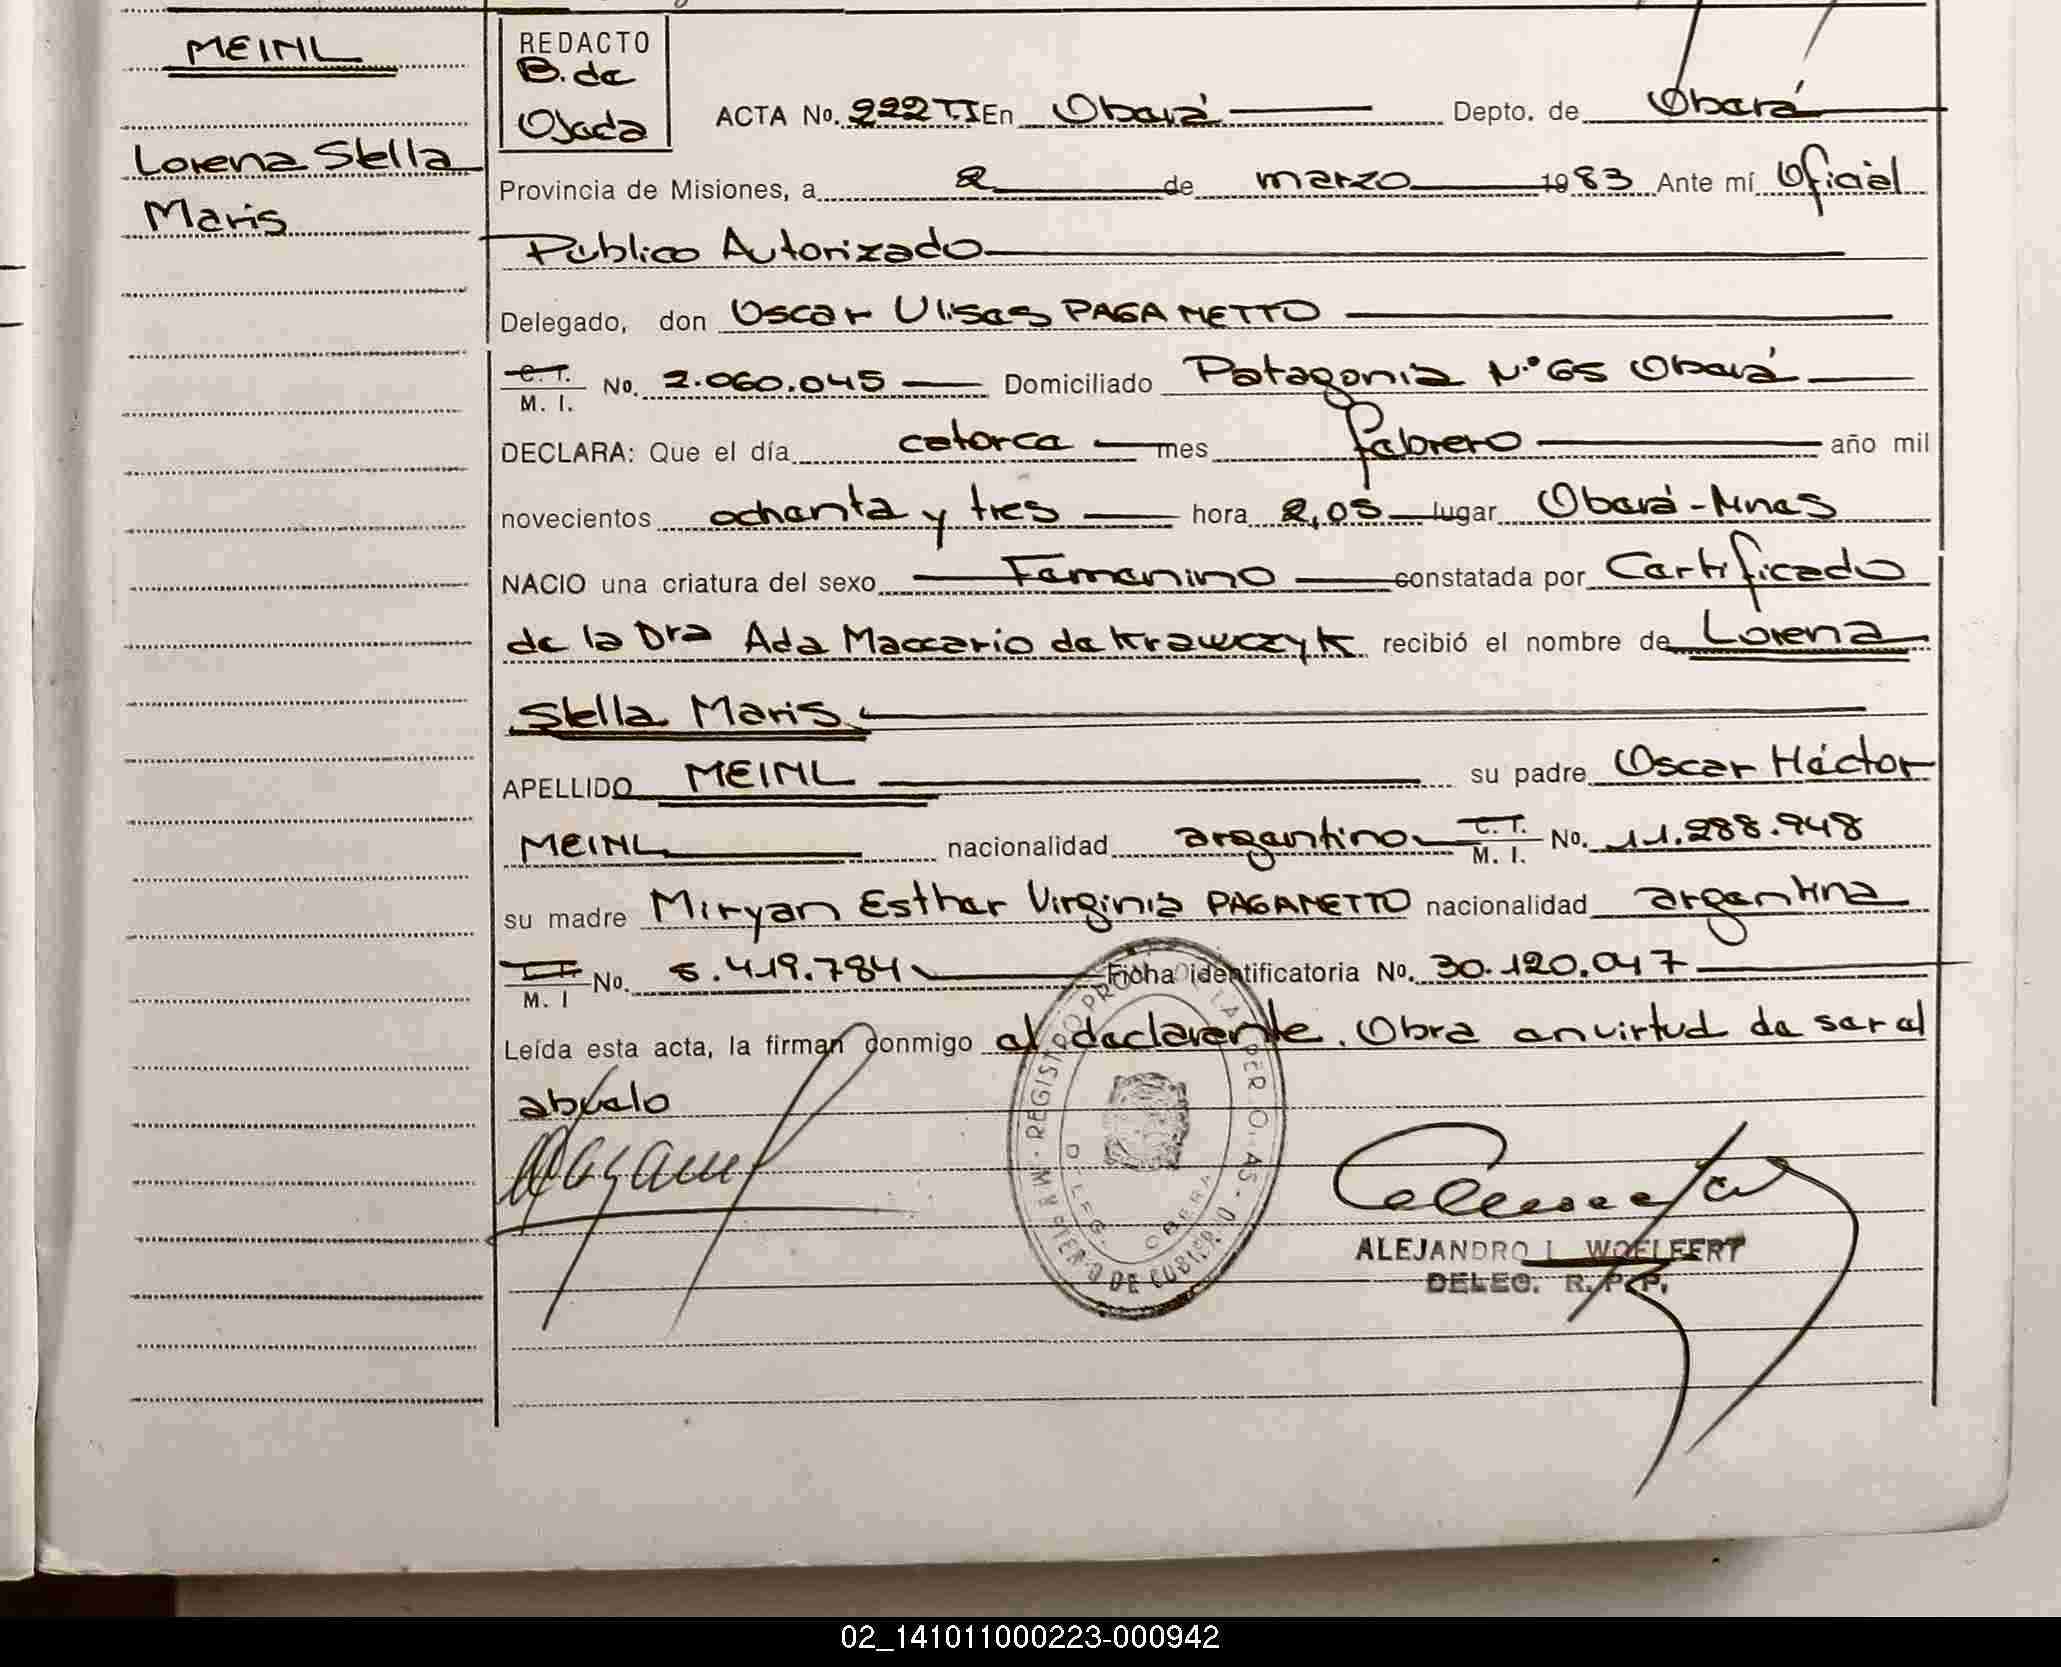 MEINL
Lorena Stella
Maris
REDACTO
B. de
Ojeda
ACTA No. 222 T.I En Oberá Depto. de Oberá
Provincia de Misiones, a 2 de marzo 1983 Ante mí Oficial
Público Autorizado
Delegado, don Oscar Ulises PAGANETTO
C. I.
M. I. No. 2.060.045 Domiciliado Patagonia N.º 65 Oberá
DECLARA: Que el día catorce mes febrero año mil
novecientos ochenta y tres hora 2,05 lugar Oberá - Mnes
NACIO una criatura del sexo Femenino constatada por Certificado
de la Dra Ada Maccario de Krawczyk recibió el nombre de Lorena
Stella Maris
APELLIDO MEINL su padre Oscar Héctor
MEINL nacionalidad argentino C. I.
M. I. No. 11.288.948
su madre Miryan Esther Virginia PAGANETTO nacionalidad argentina
M. I No. 5.419.784 Ficha identificatoria No. 30.120.047
Leída esta acta, la firman conmigo el declarante. Obra en virtud de ser el
abuelo
ALEJANDRO L. WOELFERT
DELEG. R. P. P.
02_141011000223-000942